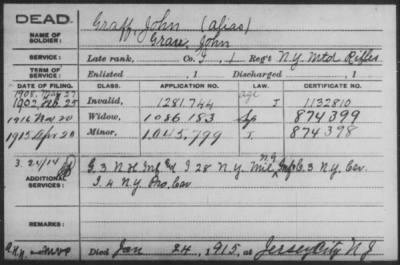 DEAD.
NAME OF SOLDIER:
Graff, John (alias)
Grave, John
SERVICE:
Late rank, Co. I, 1 Reg't N.Y. Mtd Rifles
TERM OF SERVICE:
Enlisted , 1 Discharged , 1
DATE OF FILING. CLASS. APPLICATION NO. LAW. CERTIFICATE NO.
1908, May 27
1902, Feb. 25 Invalid, 1281.744 1132810
age
1916 Nov 20 Widow, 1086183 874399
1915 Apr 20 Minor, 1045,799 874398
3.24/14
ADDITIONAL SERVICES:
G. 3 N.H. Inf & I 28 N.Y. Mil. N.G. Inf & C. 3 N.Y. Cav.
I. 4 N.Y. Pro. Cav
REMARKS:
Died Jan 24, 1915, at Jersey City N.J.